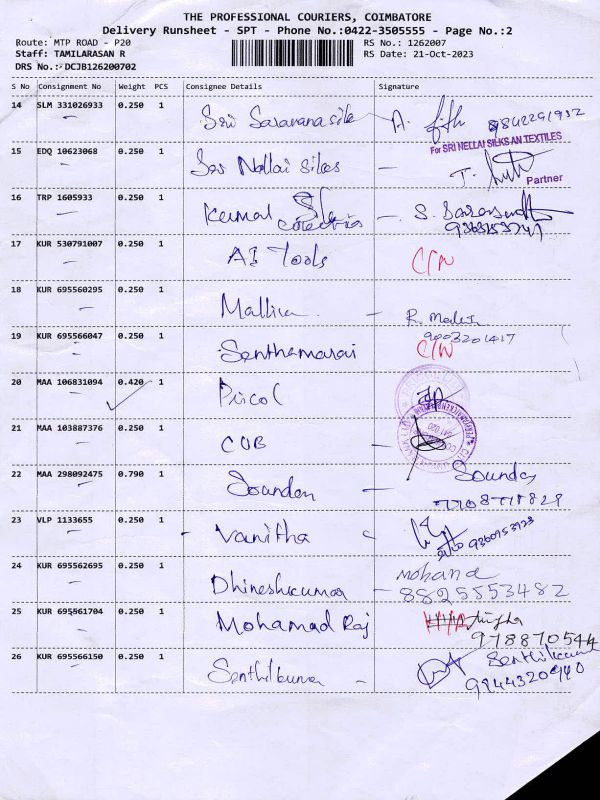 THE PROFESSIONAL COURIERS, COIMBATORE
Delivery Runsheet - SPT - Phone No.:0422-3505555 - Page No.:2
Route: MTP ROAD - P20 RS No.: 1262007
Staff: TAMILARASAN R RS Date: 21-Oct-2023
DRS No.:- DCJB126200702
S No Consignment No Weight PCS Consignee Details Signature
14 SLM 331026933 0.250 1 Sri Saravana silk
For SRI NELLAI SILKS AN TEXTILES
15 EDQ 10623068 0.250 1 Sri Nellai silks
Partner
16 TRP 1605933 0.250 1 Kumal
17 KUR 530791007 0.250 1 AI Tools C/N
18 KUR 695560295 0.250 1 Mallika -
9003201417
19 KUR 695566047 0.250 1 Senthamarai C/N
20 MAA 106831094 0.420 1 Pricol
21 MAA 103887376 0.250 1 CUB -
22 MAA 298092475 0.790 1 Soundar - Soundar
7708778829
23 VLP 1133655 0.250 1 Vanitha
9360953923
24 KUR 695562695 0.250 1 Dhineshkumar - Mohana
8825553482
25 KUR 695561704 0.250 1 Mohamad Raj
978870544
26 KUR 695566150 0.250 1 Senthilkumar - Senthilkumar
9944320940